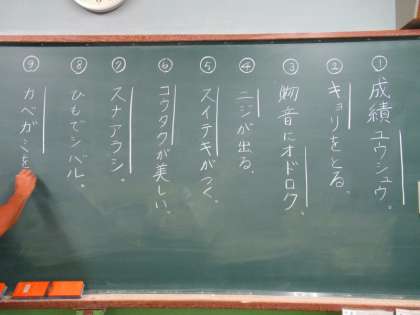 ① 成績ユウシュウ。
② キョリをとる。
③ 物音にオドロク。
④ ニジが出る。
⑤ スイテキがつく。
⑥ コウタクが美しい。
⑦ スナアラシ。
⑧ ひもでシバル。
⑨ カベガミを